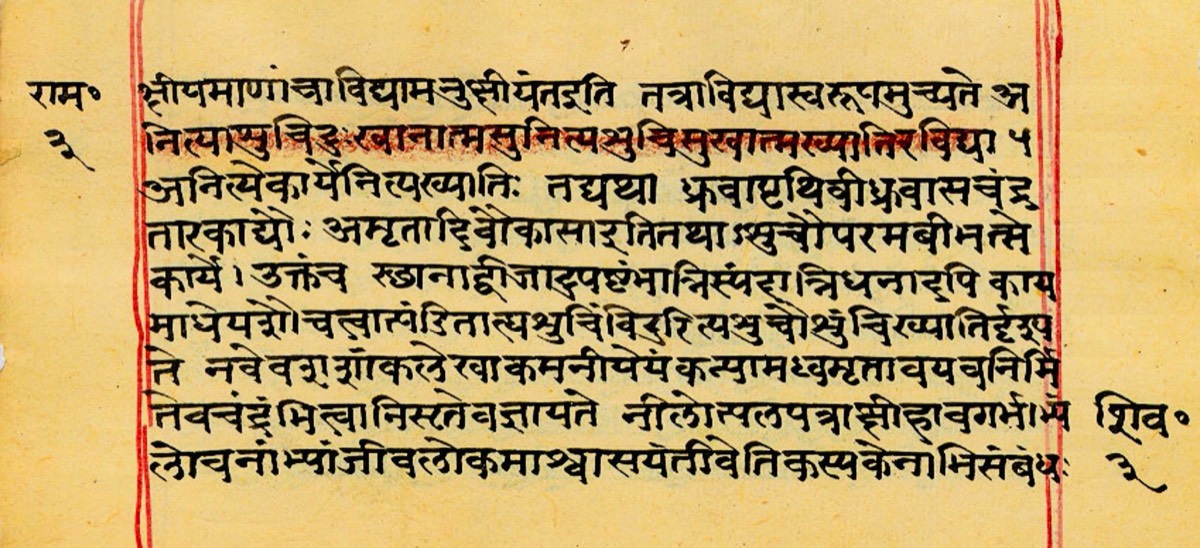 राम॰
३
क्षीयमाणां चाविद्यामनुक्षीयंतइति तत्राविद्यास्वरूपमुच्यते अ
नित्याशुचिदुःखानात्मसुनित्यशुचिसुखात्मख्यातिरविद्या ५
अनित्येकार्येनित्यख्यातिः तद्यथा ध्रुवापृथिवीध्रुवासचंद्र
तारकाद्यौः अमृतादिवौकासाइतितथाऽशुचौपरमबीभत्से
काये। उक्तंच स्छानाद्बीजादुपष्टंभान्निस्पंदान्निधनादपि काय
माधेयशौचत्वात्पंडिताह्यशुचिंविदुरित्यशुचौशुंचिख्यातिर्दृश्य
ते नवेवशशांकलेखाकमनीयेयंकन्यामध्वमृतावयवनिर्मि
तेवचंद्रंभित्वानिसृतेवज्ञायते नीलोत्पलपत्राक्षीहावगर्भाभ्यां
लोचनांभ्यांजीवलोकमाश्वासयंतीवेतिकस्यकेनाभिसंबंधः
शिव॰
३